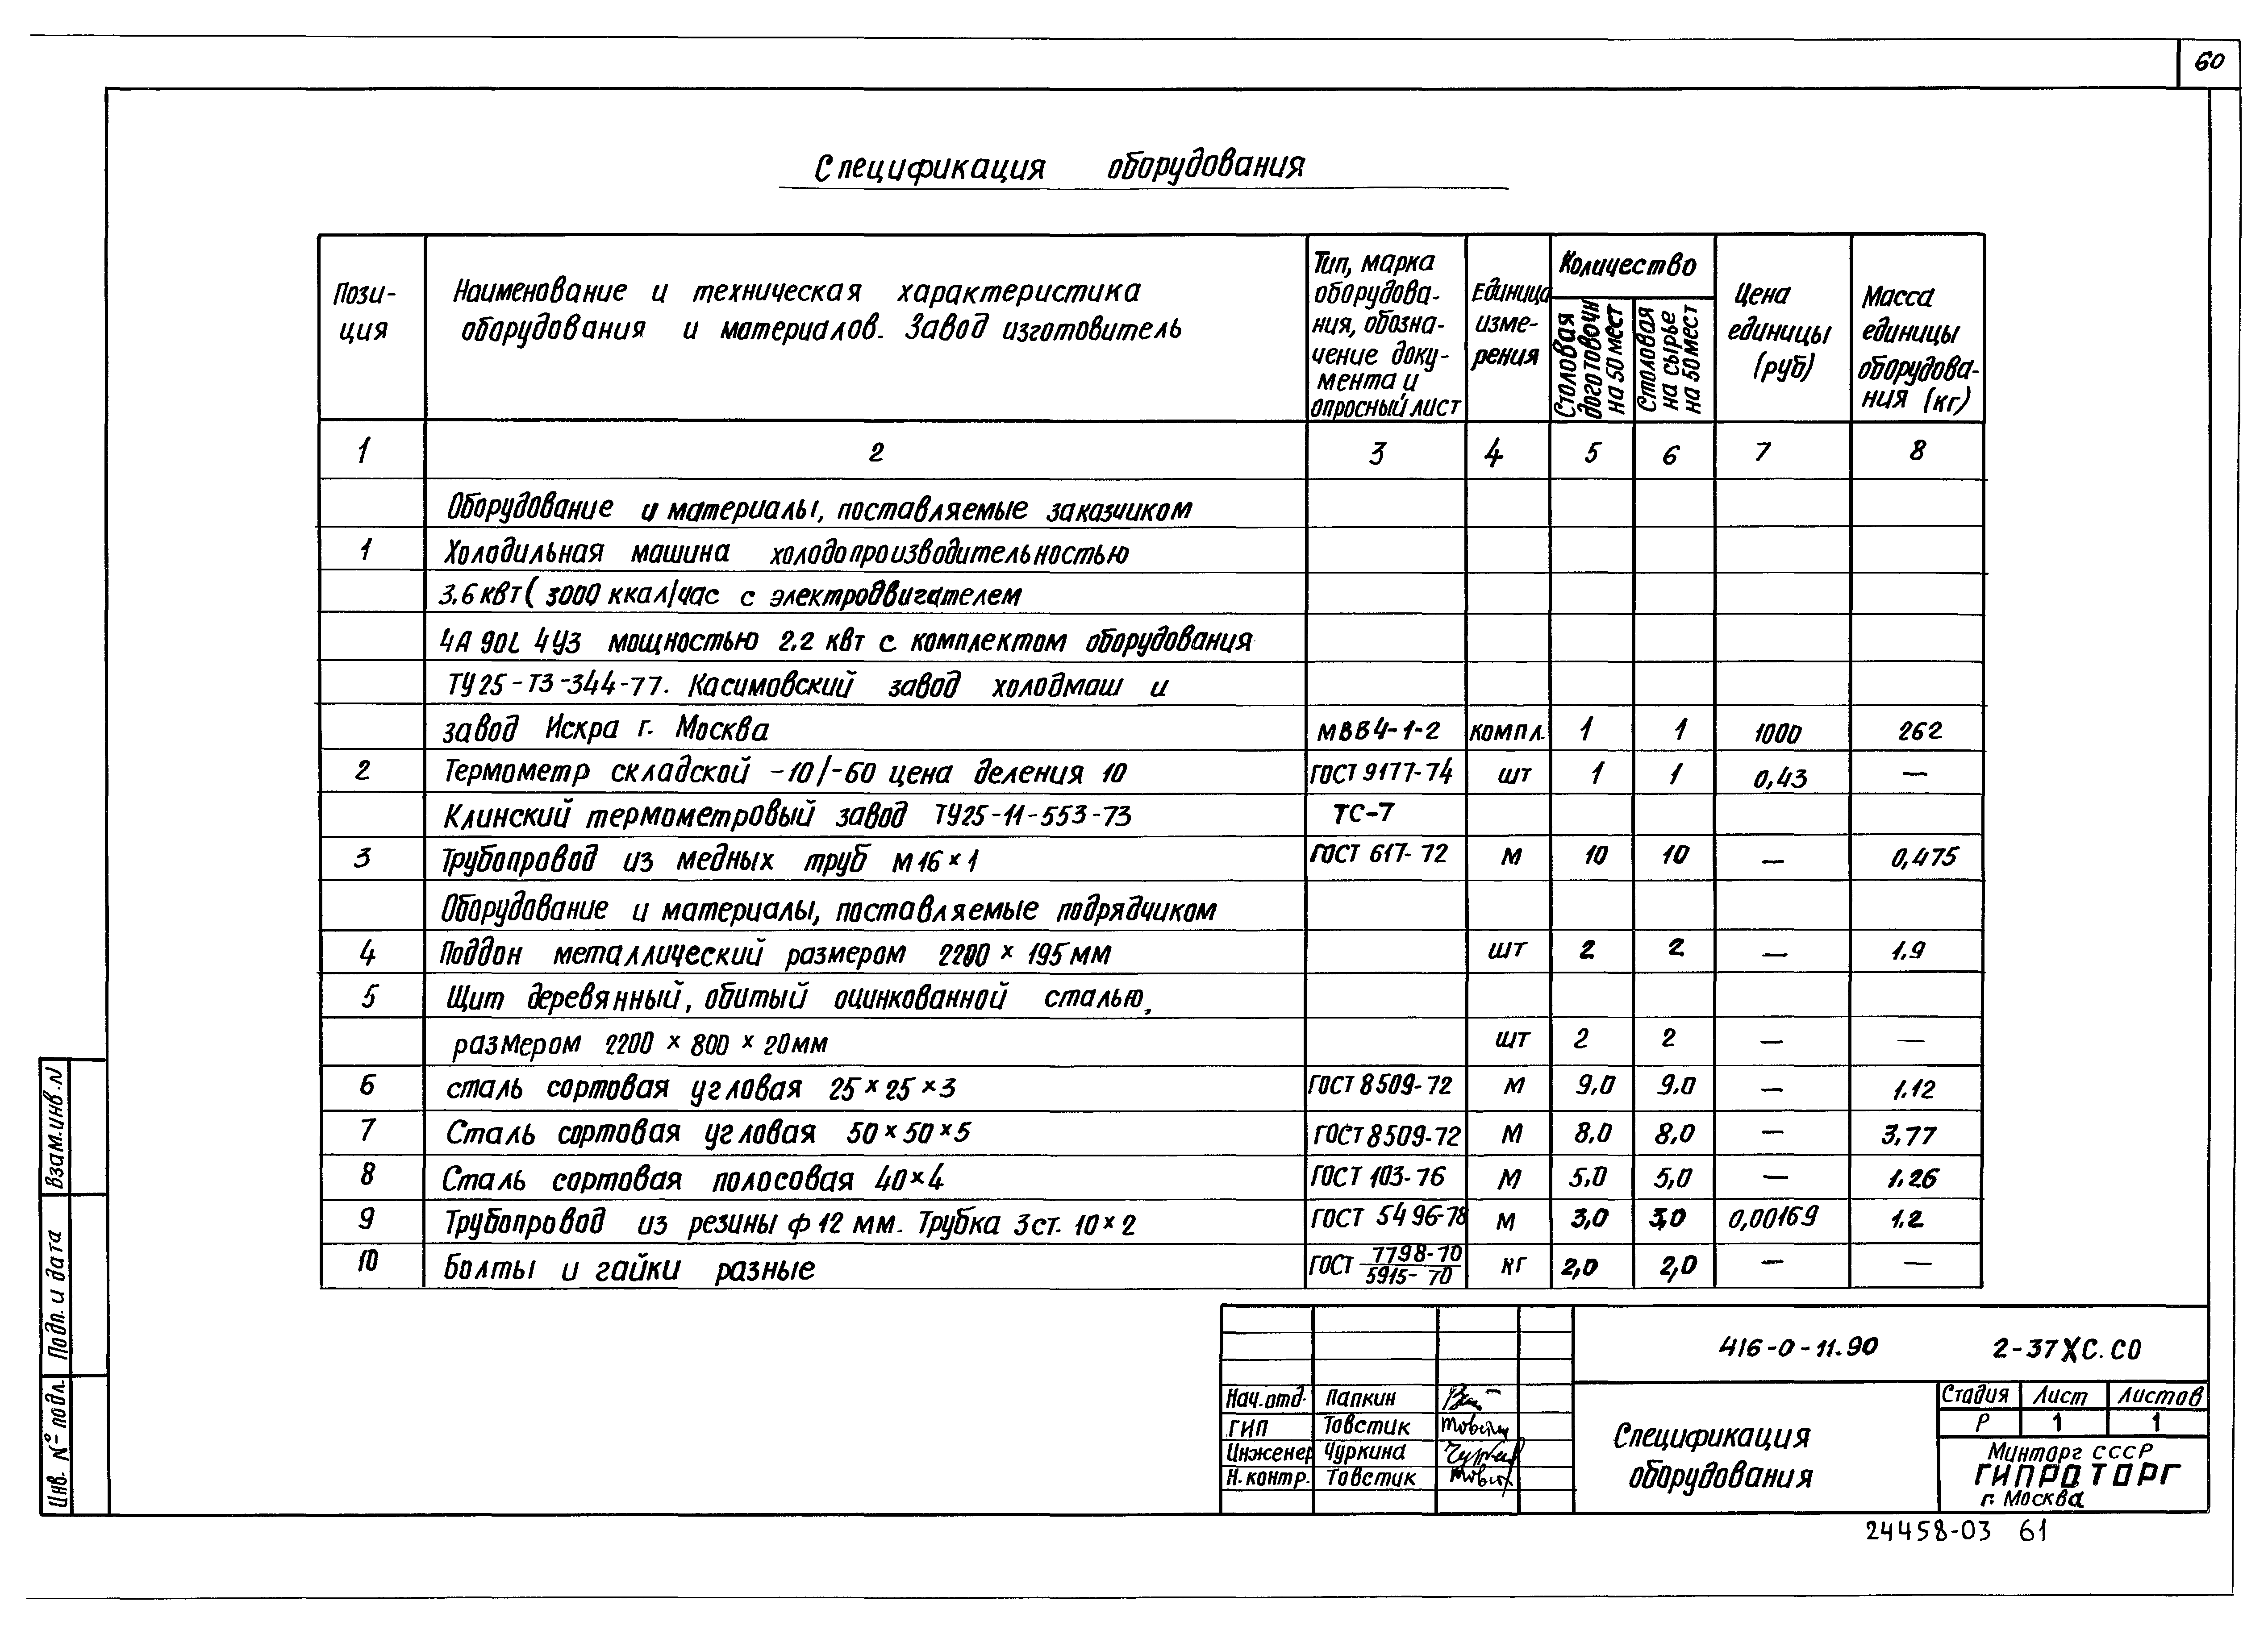 60
Спецификация оборудования
Пози-
ция
Наименование и техническая характеристика
оборудования и материалов. Завод изготовитель
Тип, марка
оборудова-
ния, обозна-
чение доку-
мента и
опросный лист
Единица
изме-
рения
Количество
Столовая
доготовочн
на 50 мест
Столовая
на сырье
на 50 мест
Цена
единицы
(руб)
Масса
единицы
оборудова-
ния (кг)
1 2 3 4 5 6 7 8
Оборудование и материалы, поставляемые заказчиком
1 Холодильная машина холодопроизводительностью
3.6 квт ( 3000 ккал/час с электродвигателем
4А 90L 4У3 мощностью 2.2 квт с комплектом оборудования
ТУ25-ТЗ-344-77. Касимовский завод холодмаш и
завод Искра г. Москва МВВ4-1-2 компл. 1 1 1000 262
2 Термометр складской -10/-60 цена деления 10 ГОСТ 9177-74 шт 1 1 0,43 —
Клинский термометровый завод ТУ25-11-553-73 ТС-7
3 Трубопровод из медных труб М16×1 ГОСТ 617-72 м 10 10 — 0,475
Оборудование и материалы, поставляемые подрядчиком
4 Поддон металлический размером 2200 × 195 мм шт 2 2 — 1.9
5 Щит деревянный, обитый оцинкованной сталью,
размером 2200 × 800 × 20мм шт 2 2 — —
6 сталь сортовая угловая 25×25×3 ГОСТ 8509-72 м 9,0 9,0 — 1.12
7 Сталь сортовая угловая 50×50×5 ГОСТ 8509-72 м 8,0 8,0 — 3,77
8 Сталь сортовая полосовая 40×4 ГОСТ 103-76 м 5,0 5,0 — 1.26
9 Трубопровод из резины ф 12 мм. Трубка 3ст. 10×2 ГОСТ 5496-78 м 3,0 3,0 0,00169 1.2
10 Болты и гайки разные ГОСТ 7798-70/5915-70 кг 2,0 2,0 — —
Взам.инв.N
Подп. и дата
Инв. № подл.
416-0-11.90 2-37ХС.СО
Нач.отд. Папкин
ГИП Товстик
Инженер Чуркина
Н.контр. Товстик
Спецификация
оборудования
Стадия Лист Листов
Р 1 1
Минторг СССР
ГИПРОТОРГ
г. Москва
24458-03 61